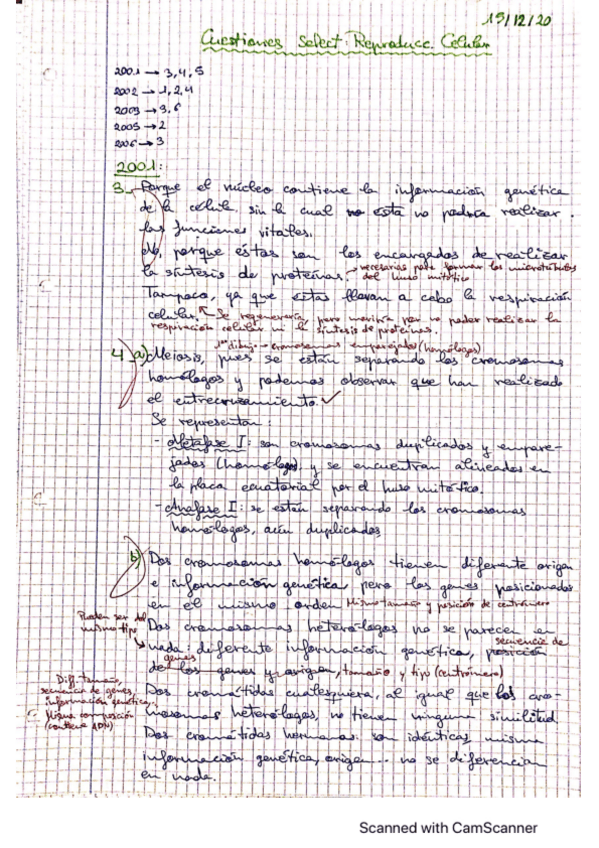 15/12/20
Cuestiones Select. Reproducc. Celular
2001 → 3, 4, 5
2002 → 1, 2, 4
2003 → 3, 6
2005 → 2
2006 → 3
2001:
3.- Porque el núcleo contiene la información genética
de la célula, sin la cual no esta no podría realizar
las funciones vitales.
No, porque éstas son los encargados de realizar
la síntesis de proteínas. → necesarias para formar los microtúbulos
del huso mitótico
Tampoco, ya que estas llevan a cabo la respiración
celular. ↖ Se regeneraría, pero moriría por no poder realizar la
respiración celular ni la síntesis de proteínas.
1er dibujo → cromosomas emparejados (homólogos)
4. a) Meiosis, pues se están separando los cromosomas
homólogos y podemos observar que han realizado
el entrecruzamiento. ✓
Se representan:
- Metafase I: son cromosomas duplicados y empare-
jados (homólogos) y se encuentran alineados en
la placa ecuatorial por el huso mitótico.
- Anafase I: se están separando los cromosomas
homólogos, aún duplicados
b) Dos cromosomas homólogos tienen diferente origen
e información genética pero los genes posicionados
en el mismo orden Mismo tamaño y posición de centrómero
Pueden ser del
mismo tipo
Dos cromosomas heterólogos no se parecen en
secuencia de
nada: diferente información genética, posición
genes
de los genes y origen, tamaño y tipo (centrómero)
Diff. tamaño,
secuencia de genes,
información genética...
Misma composición
(contiene ADN)
Dos cromátidas cualesquiera, al igual que los cro-
mosomas heterólogos, no tienen ninguna similitud
Dos cromátidas hermanas son idénticas, misma
información genética, origen... no se diferencian
en nada.
Scanned with CamScanner